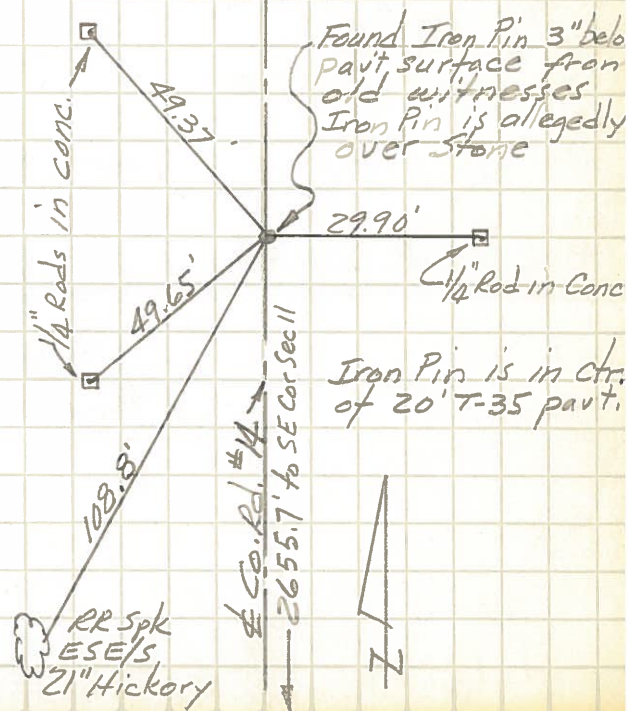 Found Iron Pin 3" belo
pav't surface from
old witnesses
Iron Pin is allegedly
over Stone
49.37
1/4" Rods in conc.
29.90'
1/4" Rod in Conc
49.65'
Iron Pin is in ctr.
of 20' T-35 pavt.
108.8'
℄ Co. Rd. #14
2655.7' to SE Cor Sec 11
RR Spk
ESE/S
21" Hickory
N